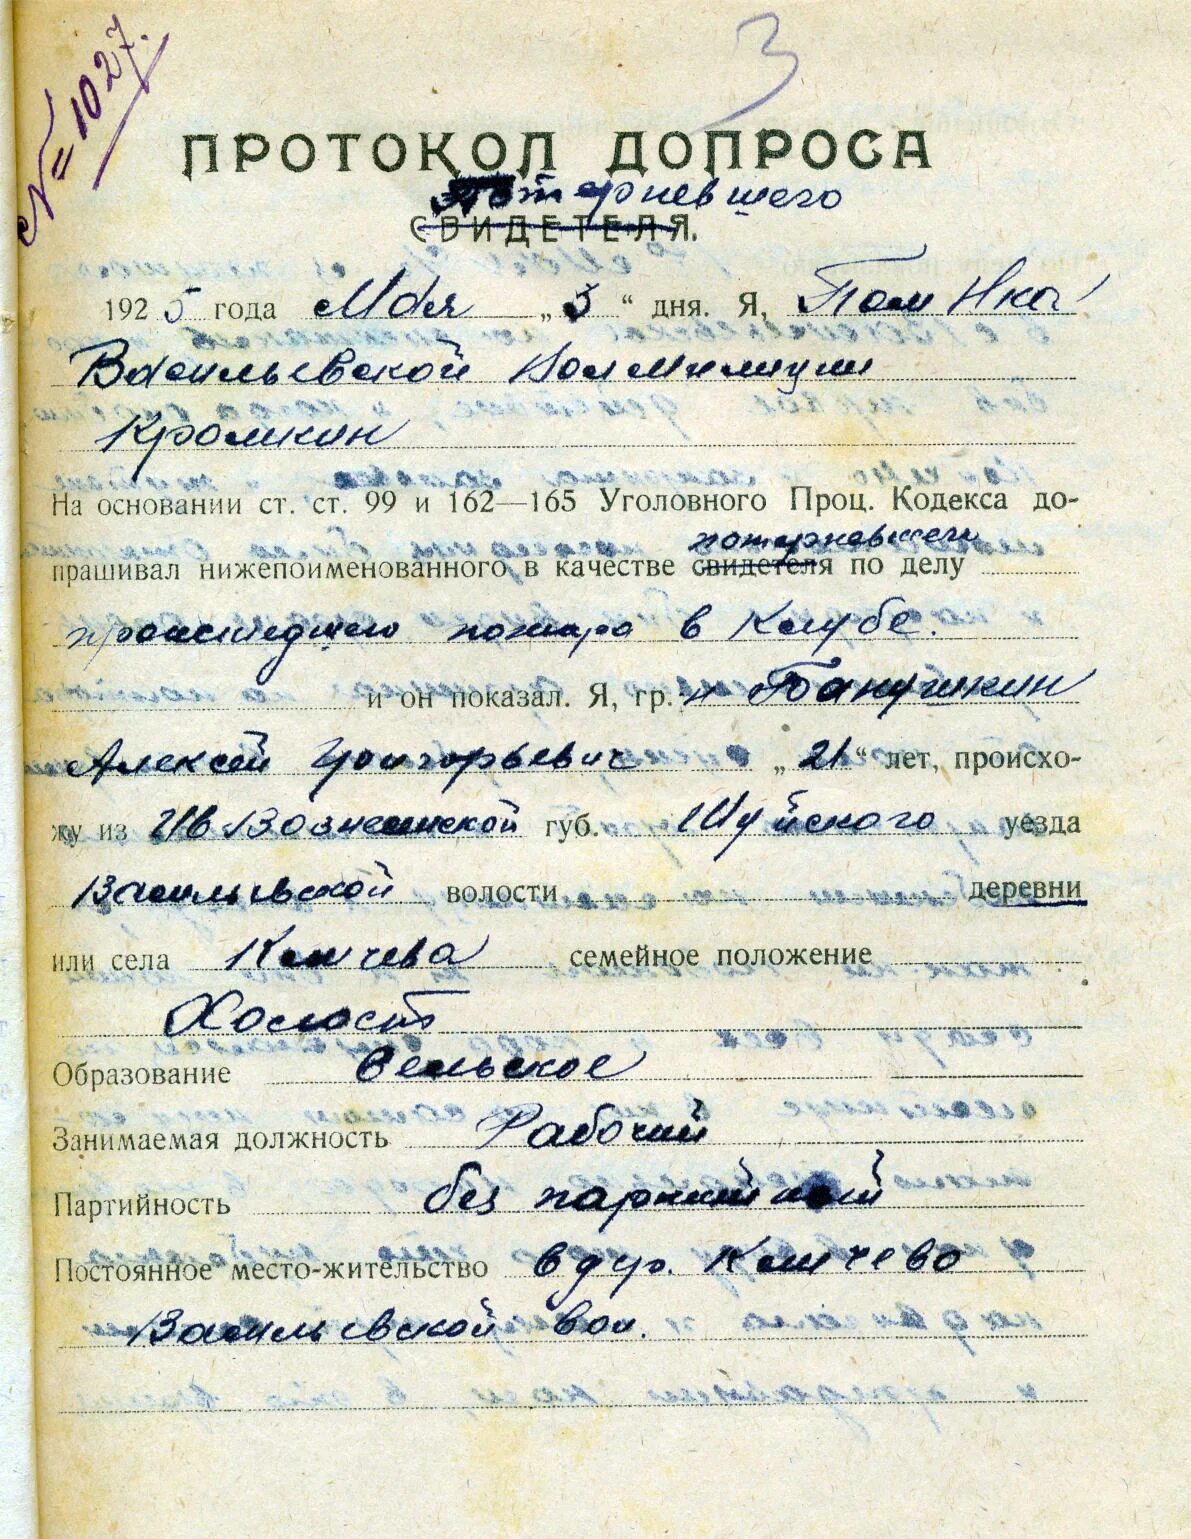 № 1027.
3
ПРОТОКОЛ ДОПРОСА
Потерпевшего
СВИДЕТЕЛЯ.
1925 года Мая „3“ дня. Я, Пом Нка
Васильевской Вол милиции
Кромкин
На основании ст. ст. 99 и 162—165 Уголовного Проц. Кодекса до-
потерпевшего
прашивал нижепоименованного в качестве свидетеля по делу
происшедшего пожара в Клубе.
и он показал. Я, гр.
Алексей Григорьевич „21“ лет, происхо-
жу из Ив Вознесенской губ. Шуйского уезда
Васильевской волости деревни
или села Клочева семейное положение
Холост
Образование Сельское
Занимаемая должность Рабочий
Партийность без партийный
Постоянное место-жительство в дер. Клочево
Васильевской вол.